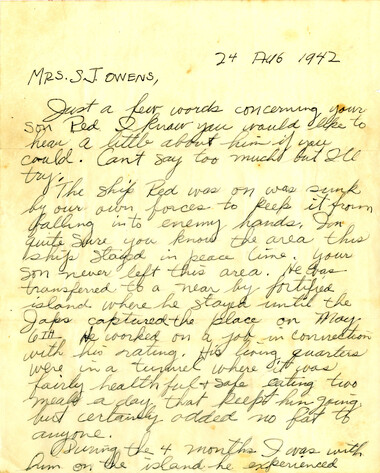 24 AUG 1942
MRS. S J OWENS,
Just a few words concerning your
son Red. I know you would like to
hear a little about him if you
could. Can't say too much but I'll
try.
The ship Red was on was sunk
by our own forces to keep it from
falling into enemy hands. I'm
quite sure you know the area this
ship stayd in peace time. Your
son never left this area. He was
transferred to a near by fortified
island where he stayd until the
Japs captured the place on May
6TH. He worked on a job in connection
with his rating. His living quarters
were in a tunnel where it was
fairly healthful & safe eating two
meals a day that keept him going
but certainly added no fat to
anyone.
During the 4 months I was with
him on the island he experienced